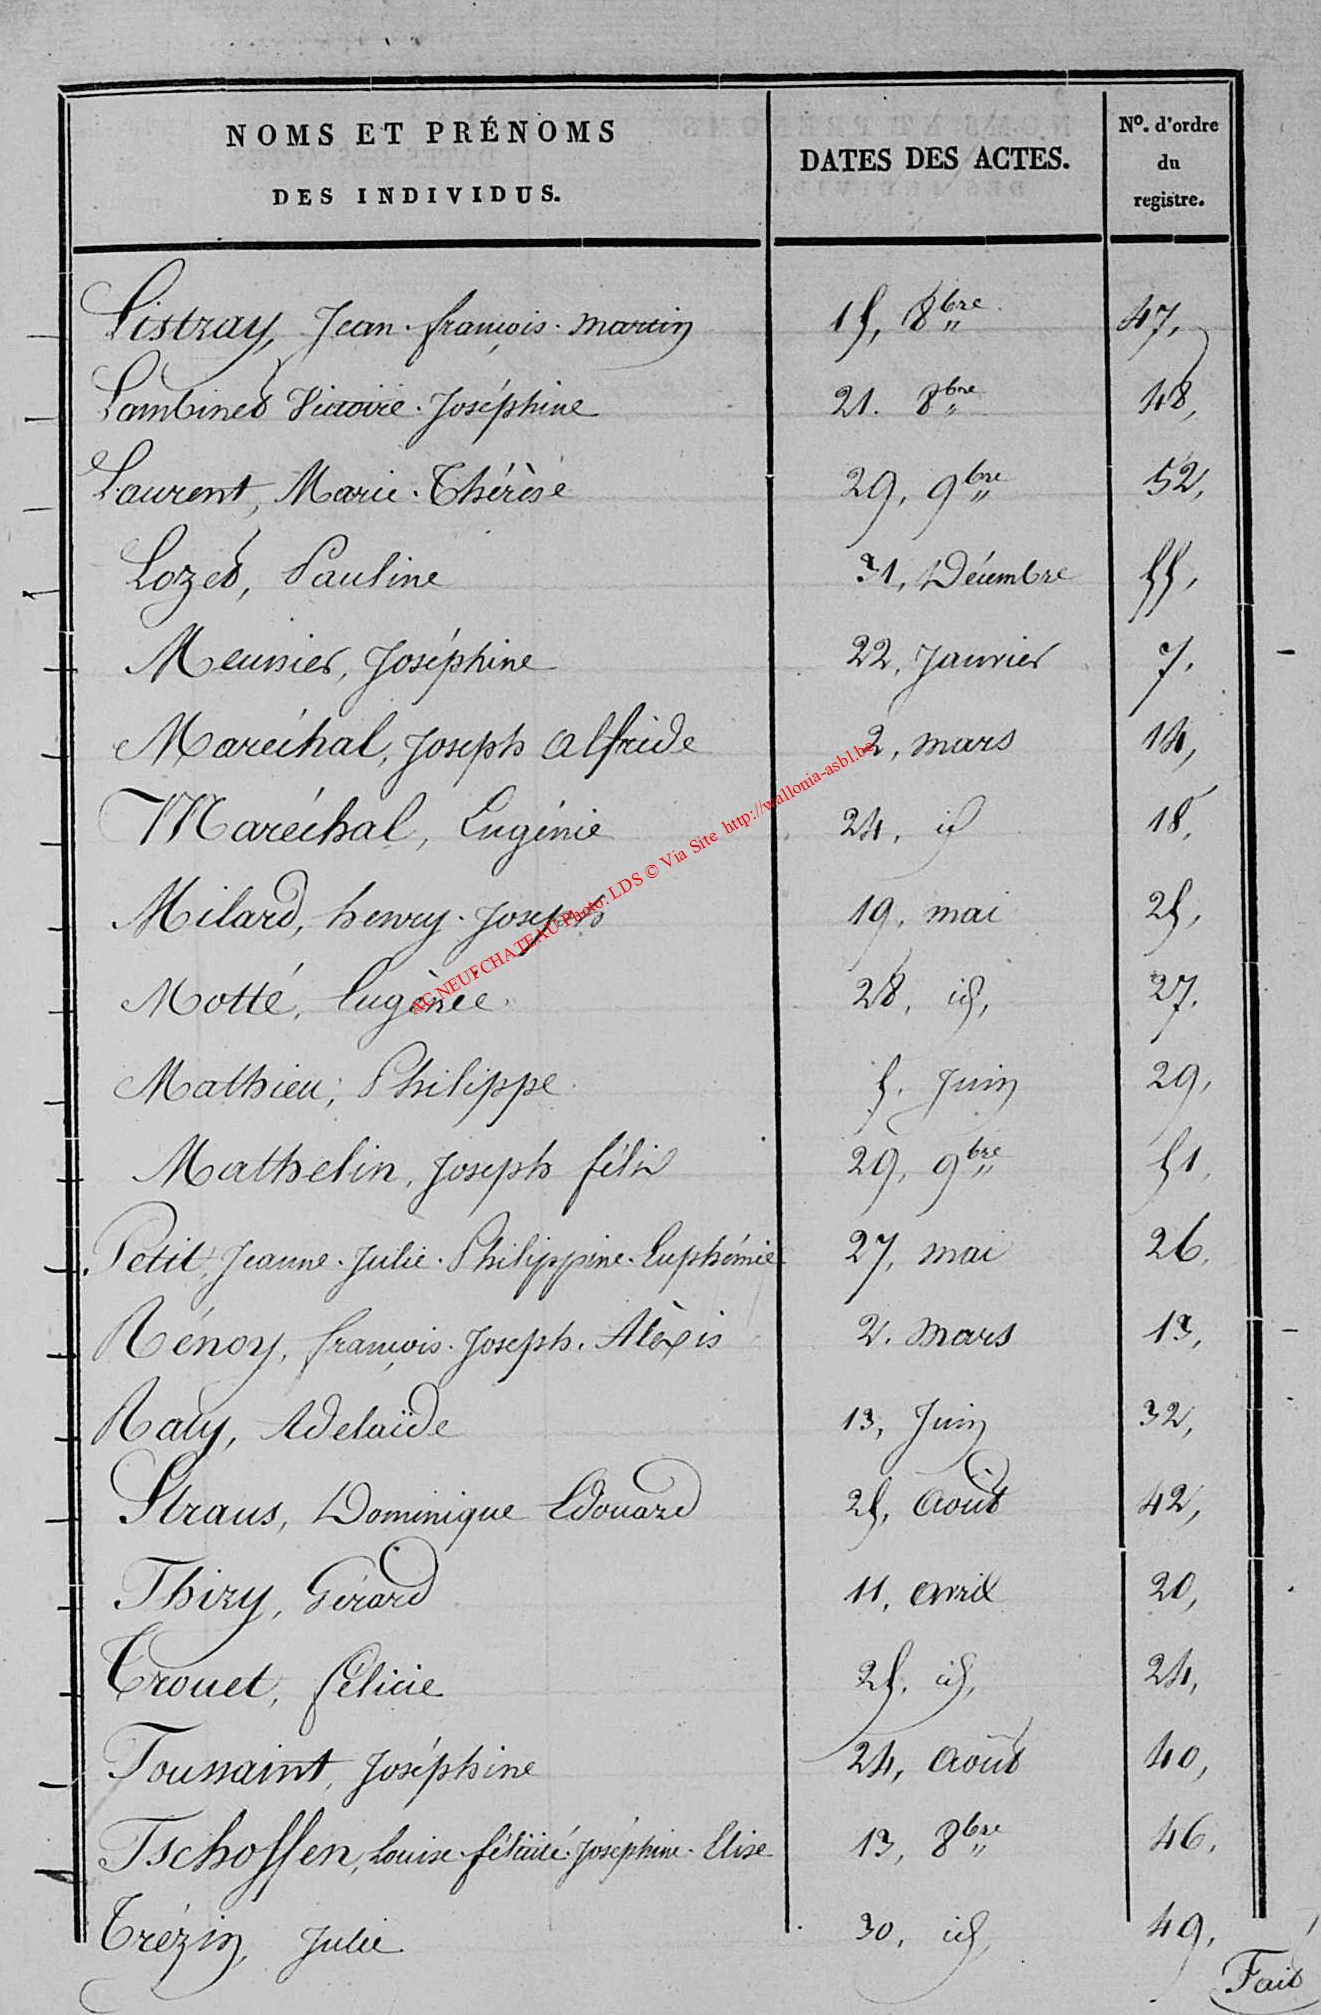 NOMS ET PRÉNOMS
DES INDIVIDUS.
DATES DES ACTES.
N°. d'ordre
du
registre.
Listray, Jean. françois. martin 15, 8bre 47,
Lambinet Victoire. Joséphine 21. 8bre 48,
Laurent, Marie. Thérèse 29, 9bre 52,
Lozet, Pauline 31, Décembre 55,
Meunier, Joséphine 22, Janvier 7.
Maréchal, Joseph alfride 2, mars 14,
Maréchal, Eugénie 24, id 18,
Milard, henry. Joseph 19, mai 25,
Motté, Eugènie 28, id, 27.
Mathieu, Philippe 5. Juin 29,
Mathelin, Joseph félix 29, 9bre 51,
Petit, Jeanne. Julie. Philippine. Euphémie 27, mai 26.
Rénoy, françois. Joseph. Alèxis 2. mars 13,
Raty, Adelaïde 13, Juin 32,
Straus, Dominique Edouard 25, Août 42,
Thiry, Gérard 11, avril 20,
Trouet, félicie 25, id, 24,
Toussaint, Joséphine 24, Août 40,
Tschoffen, Louise. félicité. Joséphine. Elise 13, 8bre 46,
Trézin, Julie 30, id, 49,
Fait
AC NEUFCHATEAU Photo. LDS © Via Site http://wallonia-asbl.be